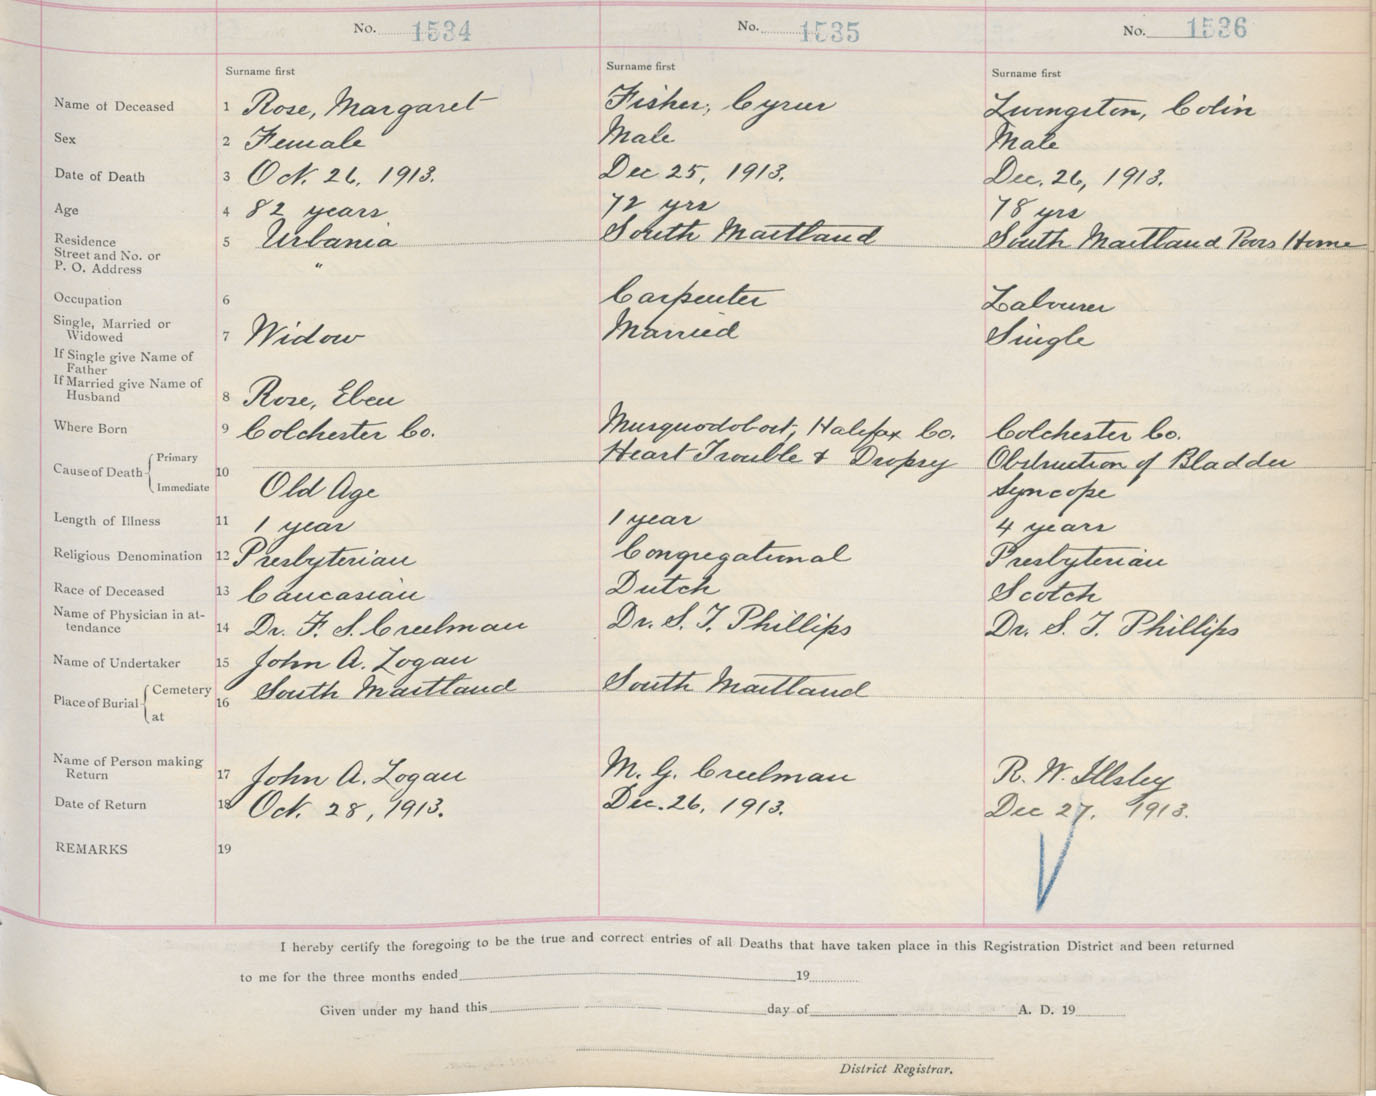 No. 1534 No. 1535 No. 1536
Surname first Surname first Surname first
Name of Deceased 1 Rose, Margaret Fisher, Cyrus Livingston, Colin
Sex 2 Female Male Male
Date of Death 3 Oct. 26, 1913. Dec 25, 1913. Dec. 26, 1913.
Age 4 82 years 72 yrs 78 yrs
Residence 5 Urbania South Maitland South Maitland Poors Home
Street and No. or
P. O. Address "
Occupation 6 Carpenter Labourer
Single, Married or
Widowed 7 Widow Married Single
If Single give Name of
Father
If Married give Name of
Husband 8 Rose, Eben
Where Born 9 Colchester Co. Musquodoboit, Halifax Co. Colchester Co.
Cause of Death Primary 10 Heart Trouble & Dropsy Obstruction of Bladder
Immediate Old Age Syncope
Length of Illness 11 1 year 1 year 4 years
Religious Denomination 12 Presbyterian Congregational Presbyterian
Race of Deceased 13 Caucasian Dutch Scotch
Name of Physician in at-
tendance 14 Dr. F. S. Creelman Dr. S. T. Phillips Dr. S. T. Phillips
Name of Undertaker 15 John A. Logan
Place of Burial Cemetery 16 South Maitland South Maitland
at
Name of Person making
Return 17 John A. Logan M. G. Creelman R. W. Illsley
Date of Return 18 Oct. 28, 1913. Dec. 26, 1913. Dec 27, 1913.
REMARKS 19
I hereby certify the foregoing to be the true and correct entries of all Deaths that have taken place in this Registration District and been returned
to me for the three months ended 19
Given under my hand this day of A. D. 19
District Registrar.